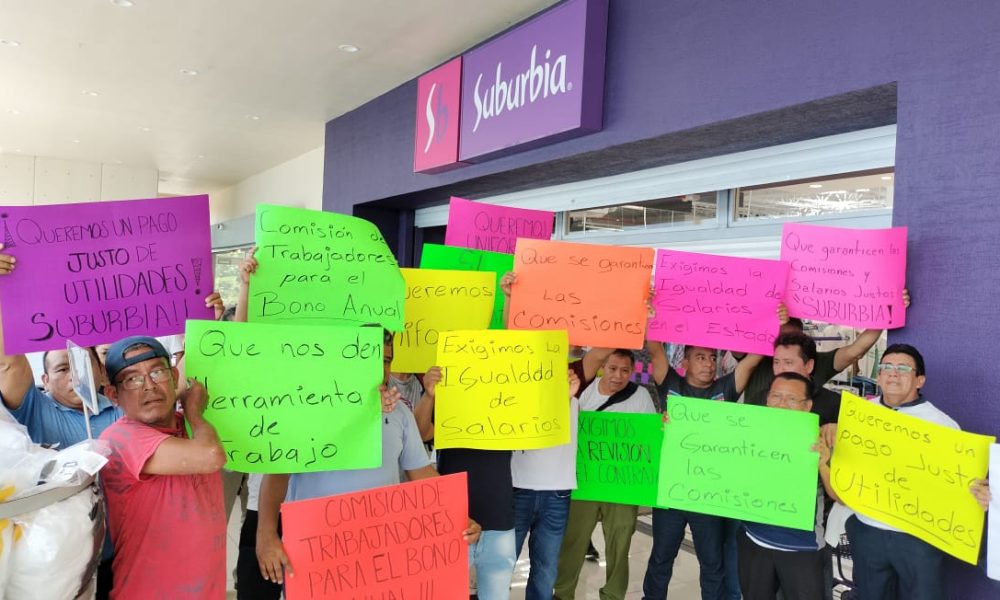 Sb
Suburbia
¡QUEREMOS UN PAGO
JUSTO DE
UTILIDADES
SUBURBIA!!
Comisión de
Trabajadores
para el
Bono Anual
QUEREMOS
Que se garanticen
LAS
Comisiones
Exigimos la
Igualdad de
Salarios
en el Estado
Que garanticen las
Comisiones y
Salarios Justos
¡SUBURBIA!
Queremos
Que nos den
Herramienta
de
Trabajo
Exigimos la
IGualdad
de
Salarios
EXIGIMOS
REVISIÓN
DEL CONTRA
Que se
Garanticen
las
Comisiones
Queremos un
pago Justo
de
Utilidades
COMISIÓN DE
TRABAJADORES
PARA EL BONO